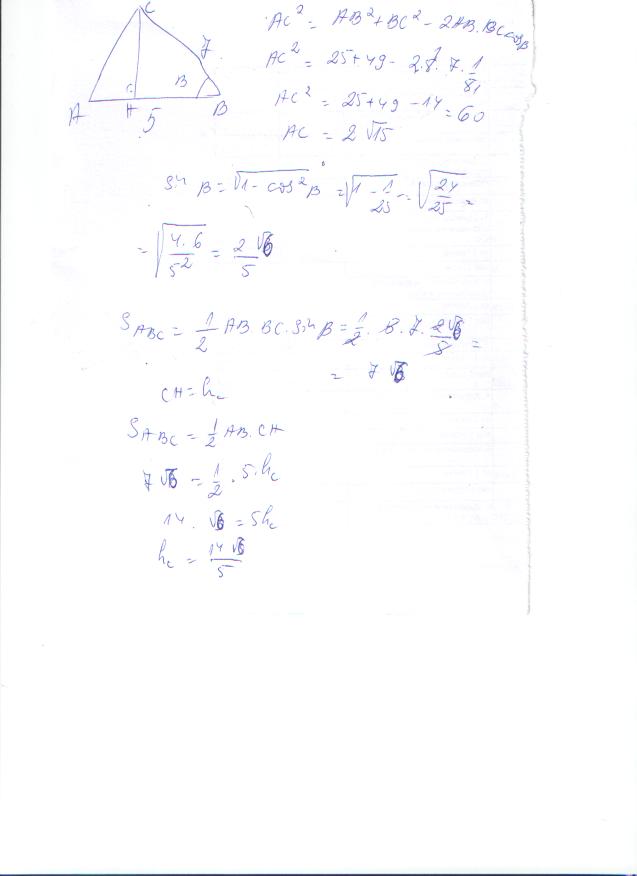 C
7
C
B
A
H
5
B
AC² = AB² + BC² - 2AB.BC cosB
AC² = 25+49 - 2.5.7.1/5
AC² = 25+49-14=60
AC = 2√15
sin B = √(1-cos²B) = √(1-1/25) = √(24/25) =
= √(4.6/5²) = 2√6/5
S ABC = 1/2 AB.BC.sin B = 1/2 . 5.7. 2√6/5 =
= 7√6
CH = hc
S ABC = 1/2 AB.CH
7√6 = 1/2 .5.hc
14.√6 = 5hc
hc = 14√6/5